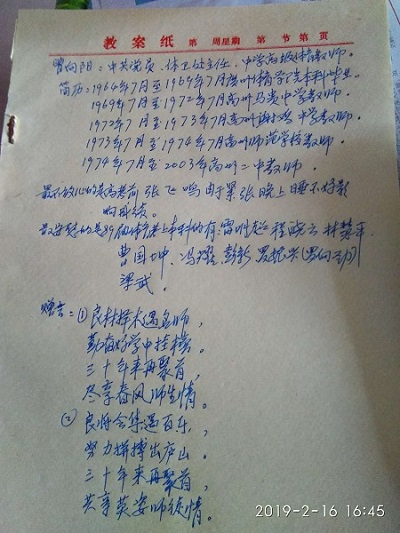 教案纸 第 周星期 第 节第 页
曾向阳：中共党员、体卫处主任、中学高级教师。
简历：1964年7月至1969年7月广州体育学院本科毕业。
1969年7月至1972年7月高州马贵中学教师。
1972年7月至1973年7月高州 中学教师。
1973年7月至1974年7月高州师范学校教师。
1974年7月至2003年高州二中教师。
最不放心的是高考前张飞鸣由于紧张晚上睡不好
响成绩。
最安慰的是89 考上本科的有：雷 程晓云 林慧平、
曹国坤、冯 、彭新、
梁武。
赠言：①良材择木遇名师，
勤奋好学中挂榜。
三十年来再聚首，
尽享春风师生情。
②良将会集遇百乐，
努力拼搏出庐山。
三十年来再聚首，
共享英姿师徒情。
2019-2-16 16:45